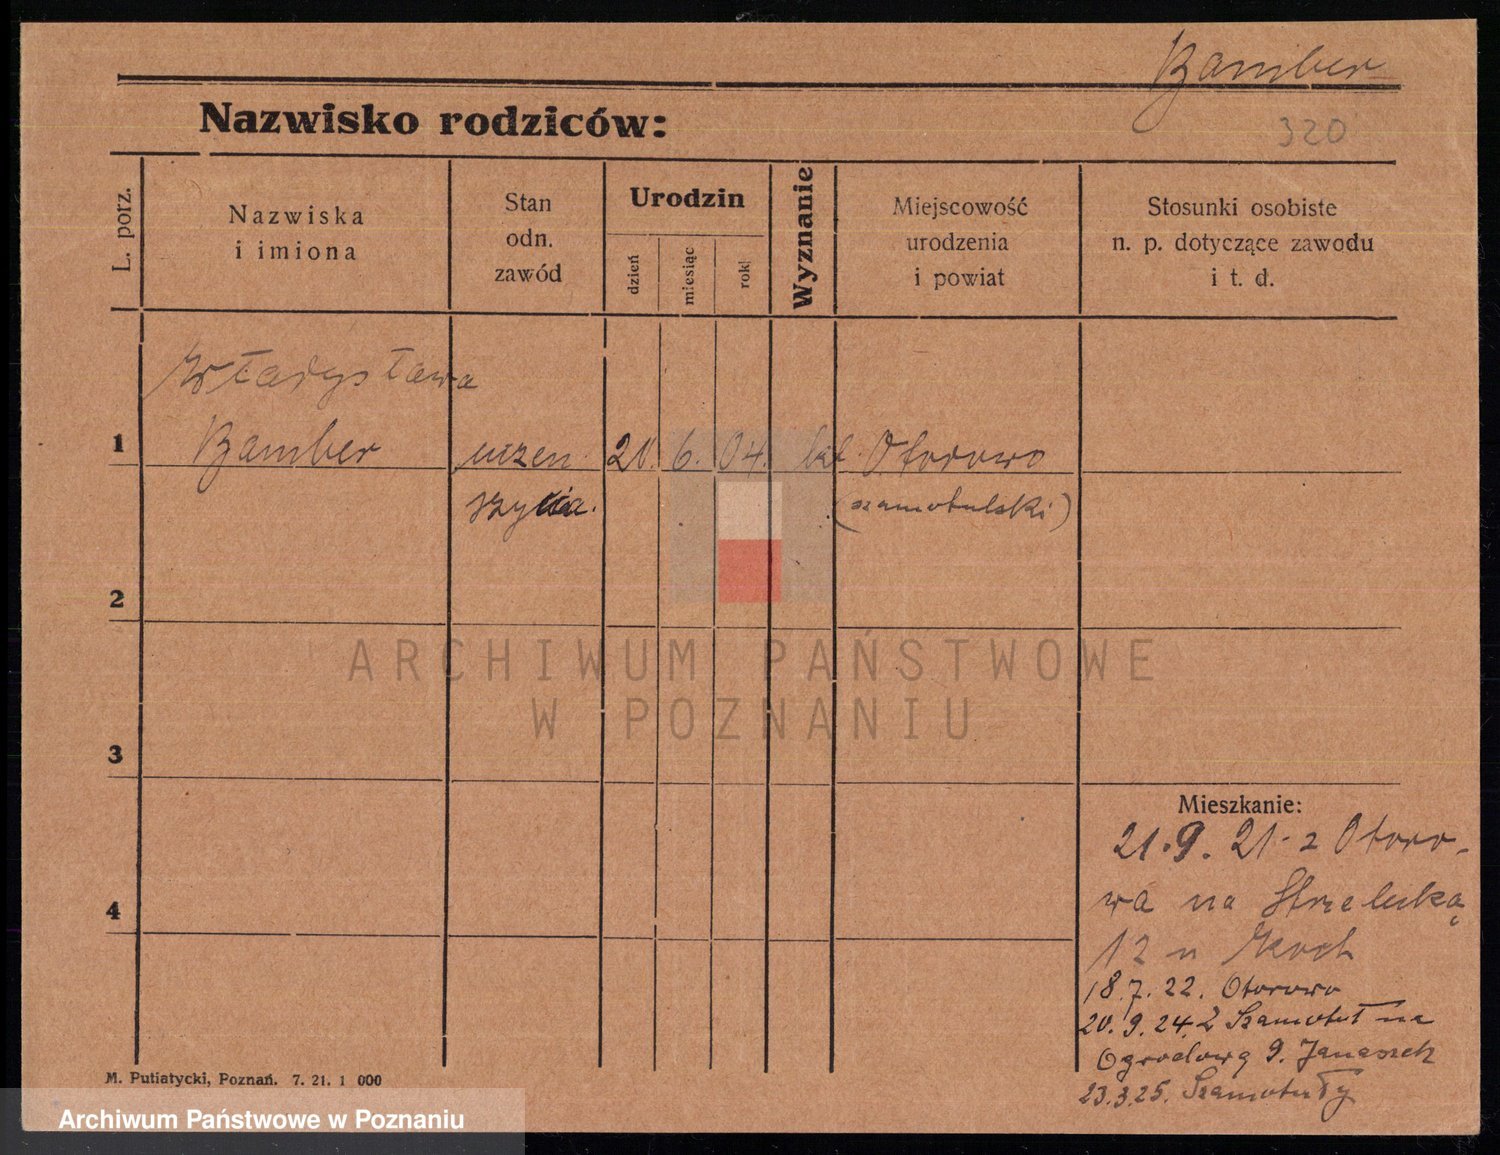 Bamber
Nazwisko rodziców:
320
L. porz.
Nazwiska
i imiona
Stan
odn.
zawód
Urodzin
dzień
miesiąc
rok
Wyznanie
Miejscowość
urodzenia
i powiat
Stosunki osobiste
n. p. dotyczące zawodu
i t. d.
Władysława
1 Bamber uczen. 20. 6. 04. kat. Otorowo
szycia. (szamotulski)
2
3
4
Mieszkanie:
21.9.21. z Otoro-
wa na Strzelecką
12 u Koch
18.7.22. Otorowo
20.9.24. z Szamotuł na
Ogrodową 9. Janaszek
23.3.25. Szamotuły
M. Putiatycki, Poznań. 7. 21. 1 000
ARCHIWUM PAŃSTWOWE
W POZNANIU
Archiwum Państwowe w Poznaniu